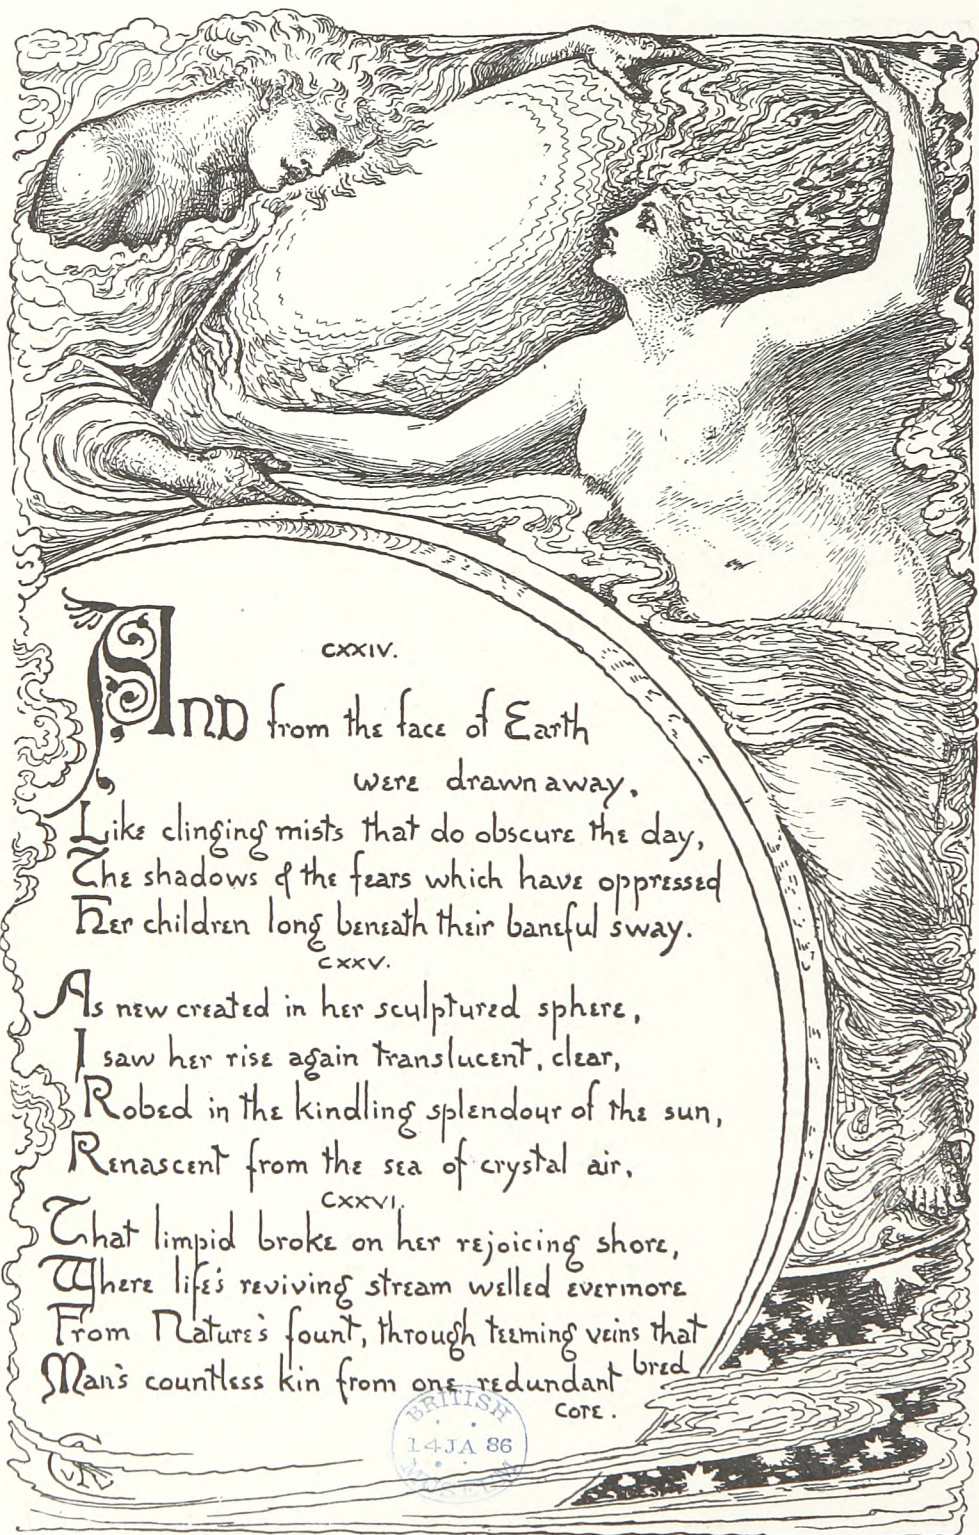 CXXIV.
AND from the face of Earth
were drawn away,
Like clinging mists that do obscure the day,
The shadows of the fears which have oppressed
Her children long beneath their baneful sway.
CXXV.
As new created in her sculptured sphere,
I saw her rise again translucent, clear,
Robed in the kindling splendour of the sun,
Renascent from the sea of crystal air,
CXXVI.
That limpid broke on her rejoicing shore,
Where life's reviving stream welled evermore
From Nature's fount, through teeming veins that
bred
Man's countless kin from one redundant
core.
BRITISH
14 JA 86
MUSEUM